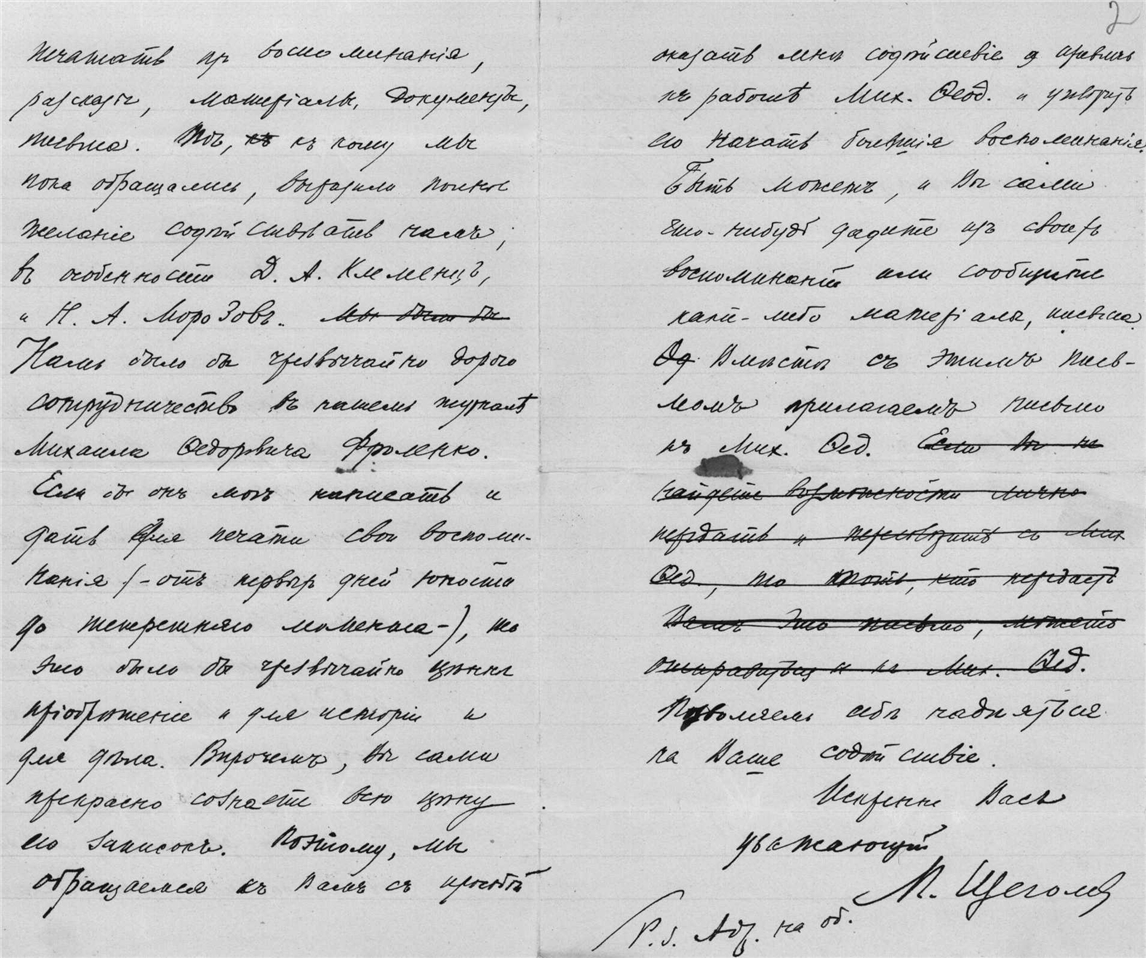 2
печатать въ воспоминанія,
разсказы, матеріалы, документы,
письма. Тѣ, къ къ кому мы
пока обращались, выразили полное
желаніе содѣйствовать намъ;
въ особенности Д. А. Клеменцъ,
и Н. А. Морозовъ. Мы были бы
Намъ было бы чрезвычайно дорого
сотрудничество въ нашемъ журналѣ
Михаила Ѳедоровича Фроленко.
Если бы онъ могъ написать и
дать для печати свои воспоми-
нанія (-отъ первыхъ дней юности
до теперешняго момента-), то
это было бы чрезвычайно цѣнное
пріобрѣтеніе и для исторіи и
для дѣла. Впрочемъ, Вы сами
прекрасно сознаете всю цѣну
его записокъ. Поэтому, мы
обращаемся къ Вамъ съ просьбой
оказать мнѣ содѣйствіе и привлечь
къ работѣ Мих. Ѳеод. и уговорить
его начать воспоминанія.
Быть можетъ, и Вы сами
что-нибудь дадите изъ своихъ
воспоминаній или сообщите
какіе-либо матеріалы, письма.
Од Вмѣстѣ съ этимъ пись-
момъ прилагаемъ письмо
къ Мих. Ѳед. Если Вы не
найдете возможности лично
передать и переговорить съ Мих.
Ѳед., то тотъ, кто передастъ
Вамъ это письмо, можетъ
отправиться и къ Мих. Ѳед.
Позволяемъ себѣ надѣяться
на Ваше содѣйствіе.
Искренно Васъ
уважающій
П. Щеголевъ
P.S. Адр. на об.